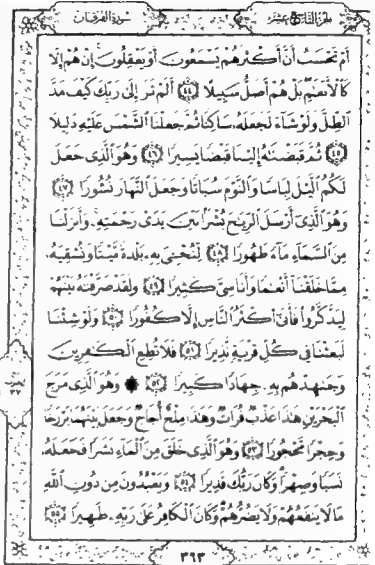 الجزء التاسع عشر
سورة الفرقان
أَمْ تَحْسَبُ أَنَّ أَكْثَرَهُمْ يَسْمَعُونَ أَوْ يَعْقِلُونَ إِنْ هُمْ إِلَّا
كَالْأَنْعَٰمِ بَلْ هُمْ أَضَلُّ سَبِيلًا ٤٤ أَلَمْ تَرَ إِلَىٰ رَبِّكَ كَيْفَ مَدَّ
الظِّلَّ وَلَوْ شَآءَ لَجَعَلَهُۥ سَاكِنًا ثُمَّ جَعَلْنَا الشَّمْسَ عَلَيْهِ دَلِيلًا
٤٥ ثُمَّ قَبَضْنَٰهُ إِلَيْنَا قَبْضًا يَسِيرًا ٤٦ وَهُوَ الَّذِى جَعَلَ
لَكُمُ الَّيْلَ لِبَاسًا وَالنَّوْمَ سُبَاتًا وَجَعَلَ النَّهَارَ نُشُورًا ٤٧
وَهُوَ الَّذِىٓ أَرْسَلَ الرِّيَٰحَ بُشْرًۢا بَيْنَ يَدَىْ رَحْمَتِهِۦ وَأَنزَلْنَا
مِنَ السَّمَآءِ مَآءً طَهُورًا ٤٨ لِّنُحْـِۧىَ بِهِۦ بَلْدَةً مَّيْتًا وَنُسْقِيَهُۥ
مِمَّا خَلَقْنَآ أَنْعَٰمًا وَأَنَاسِىَّ كَثِيرًا ٤٩ وَلَقَدْ صَرَّفْنَٰهُ بَيْنَهُمْ
لِيَذَّكَّرُوا۟ فَأَبَىٰٓ أَكْثَرُ النَّاسِ إِلَّا كُفُورًا ٥٠ وَلَوْ شِئْنَا
لَبَعَثْنَا فِى كُلِّ قَرْيَةٍ نَّذِيرًا ٥١ فَلَا تُطِعِ الْكَٰفِرِينَ
وَجَٰهِدْهُم بِهِۦ جِهَادًا كَبِيرًا ٥٢ وَهُوَ الَّذِى مَرَجَ
الْبَحْرَيْنِ هَٰذَا عَذْبٌ فُرَاتٌ وَهَٰذَا مِلْحٌ أُجَاجٌ وَجَعَلَ بَيْنَهُمَا بَرْزَخًا
وَحِجْرًا مَّحْجُورًا ٥٣ وَهُوَ الَّذِى خَلَقَ مِنَ الْمَآءِ بَشَرًا فَجَعَلَهُۥ
نَسَبًا وَصِهْرًا وَكَانَ رَبُّكَ قَدِيرًا ٥٤ وَيَعْبُدُونَ مِن دُونِ اللَّهِ
مَا لَا يَنفَعُهُمْ وَلَا يَضُرُّهُمْ وَكَانَ الْكَافِرُ عَلَىٰ رَبِّهِۦ ظَهِيرًا ٥٥
٣٦٣